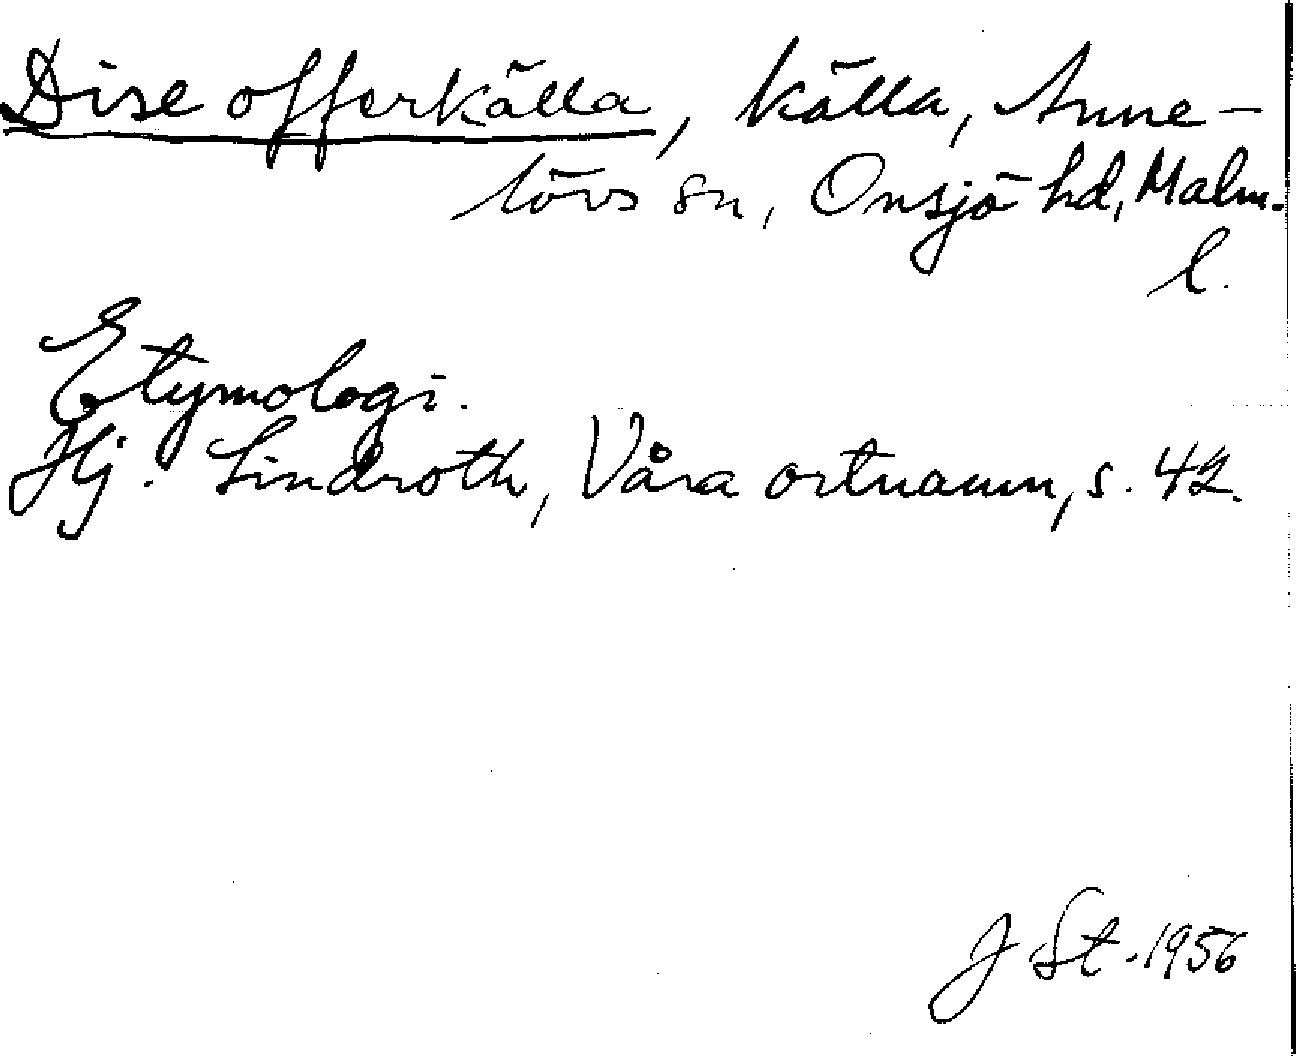 Dise offerkälla, källa, Anne-
lövs sn, Onsjö hd, Malm.
l.
Etymologi.
Hj. Lindroth, Våra ortnamn, s. 42.
J St. 1956